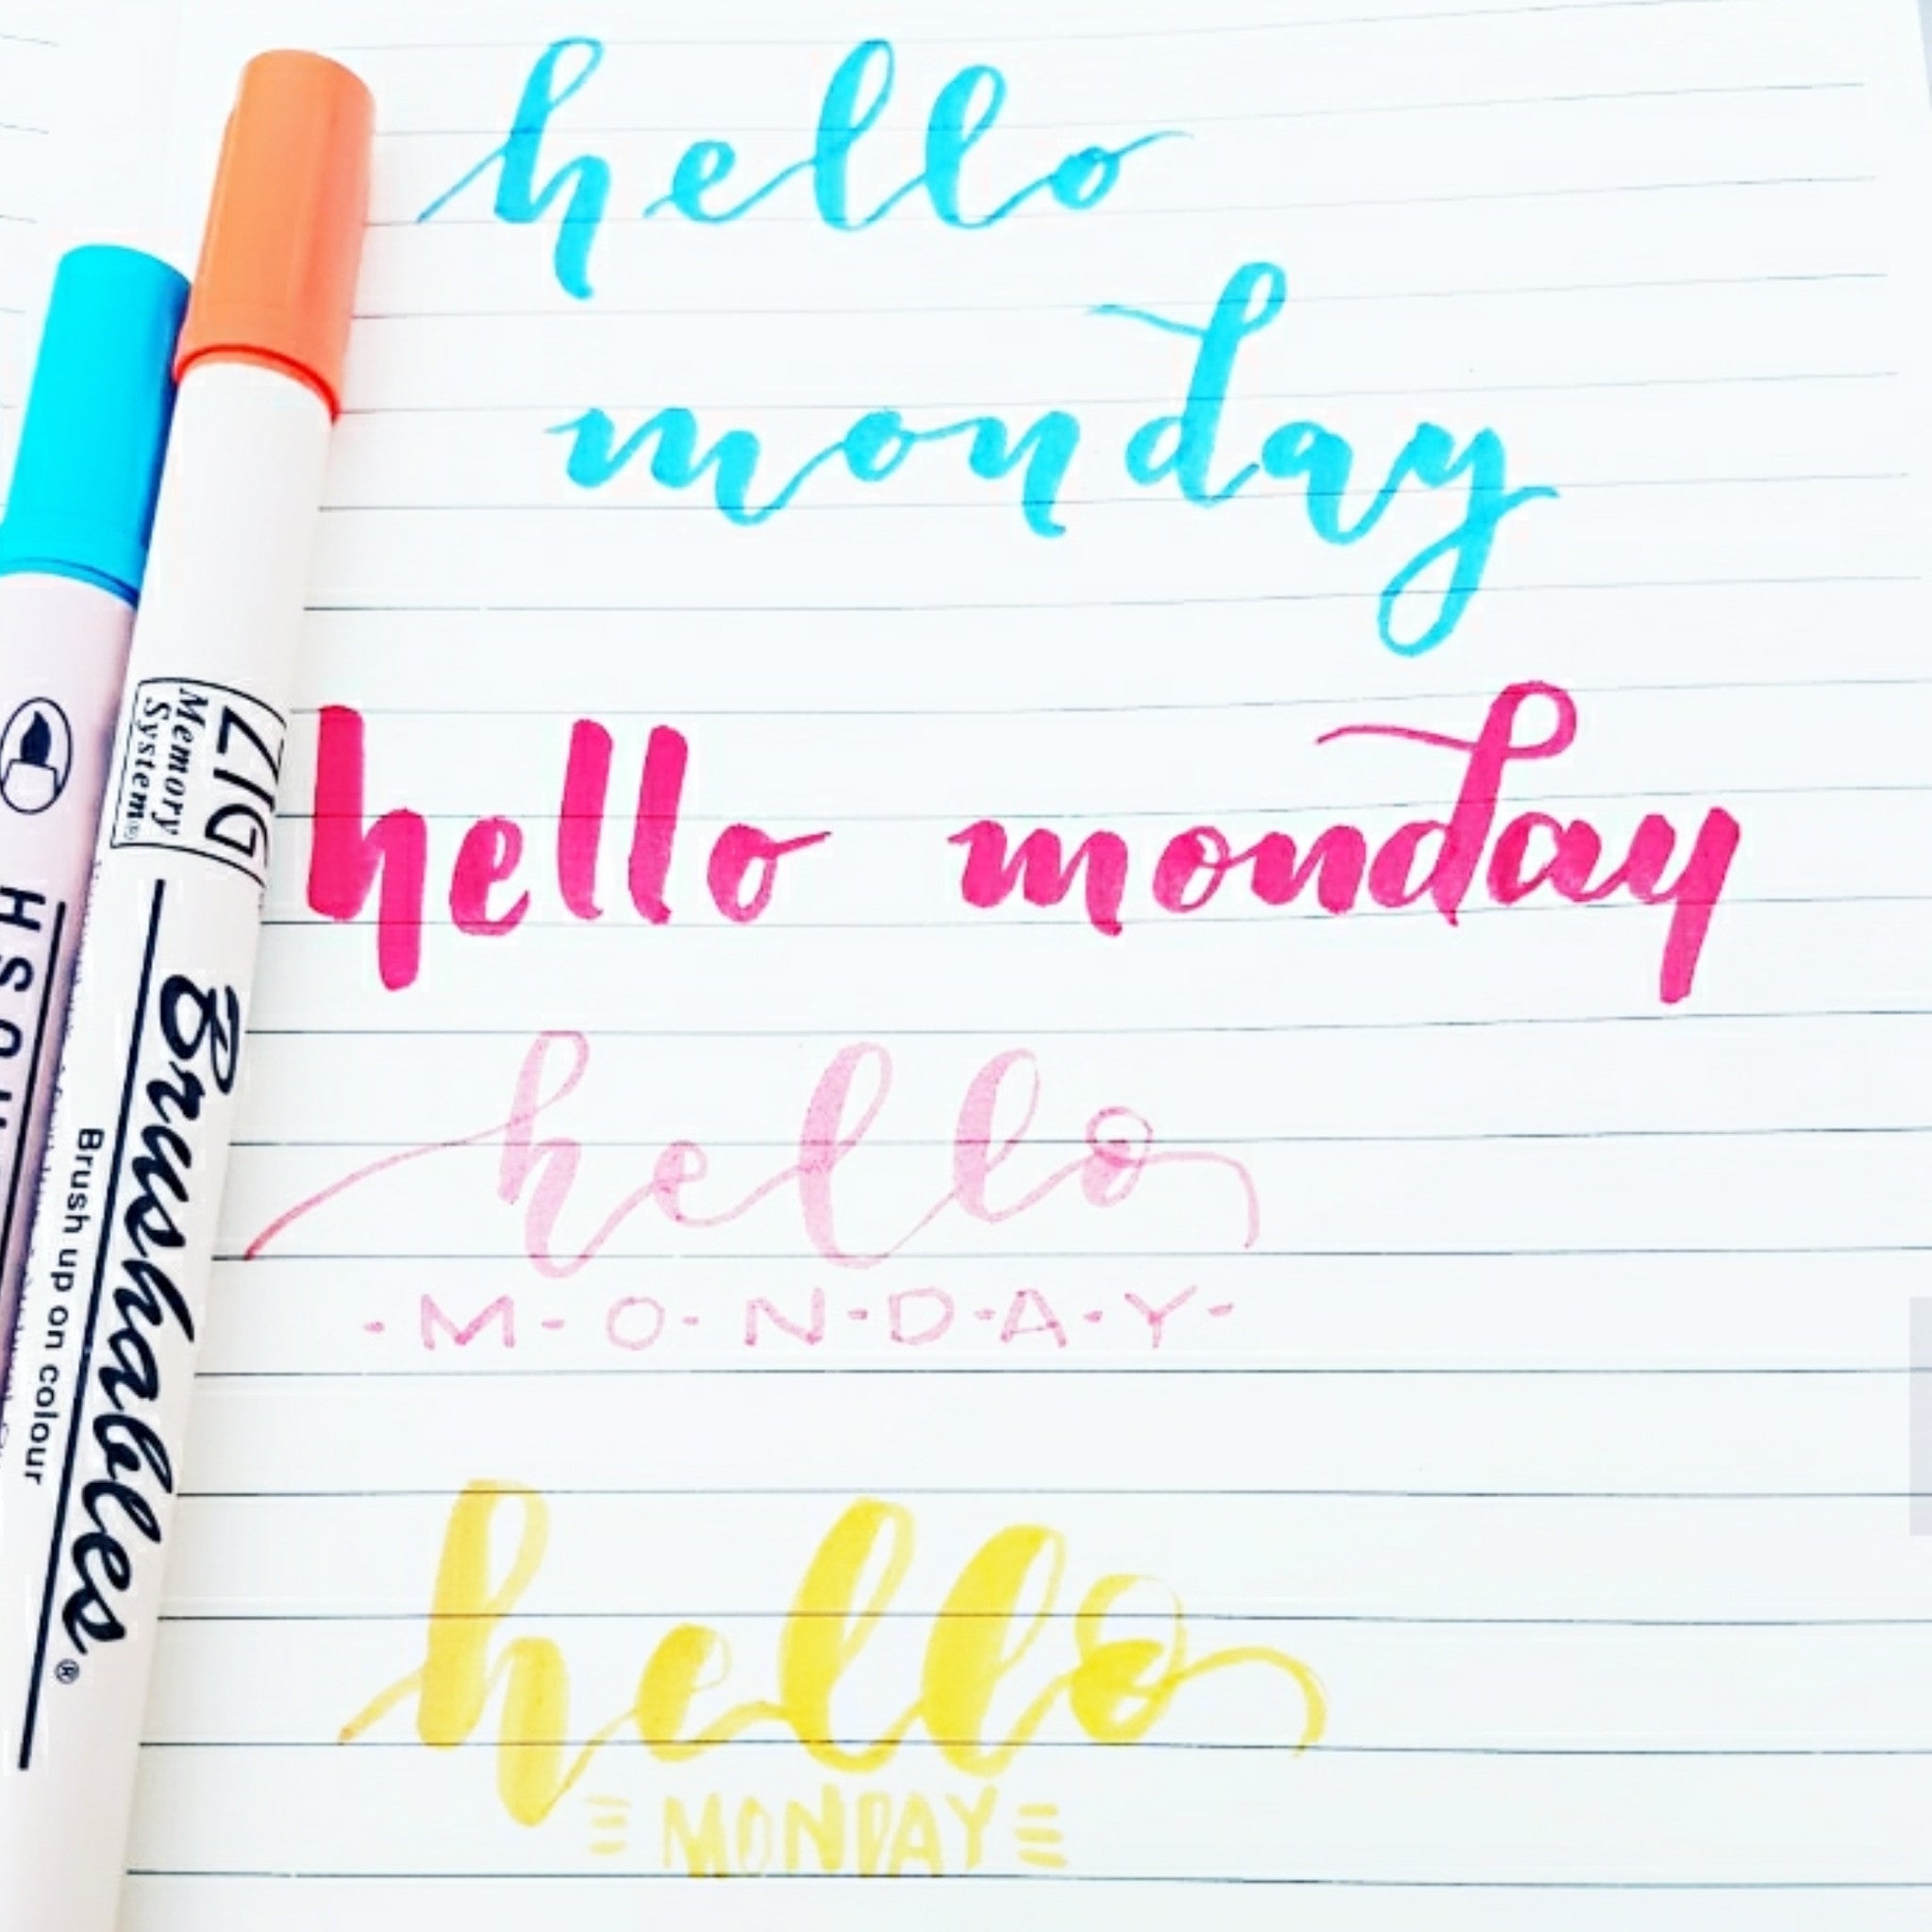 hello
monday
hello monday
hello
-M-O-N-D-A-Y-
hello
MONDAY
ZIG
Memory
System®
Brushables®
Brush up on colour